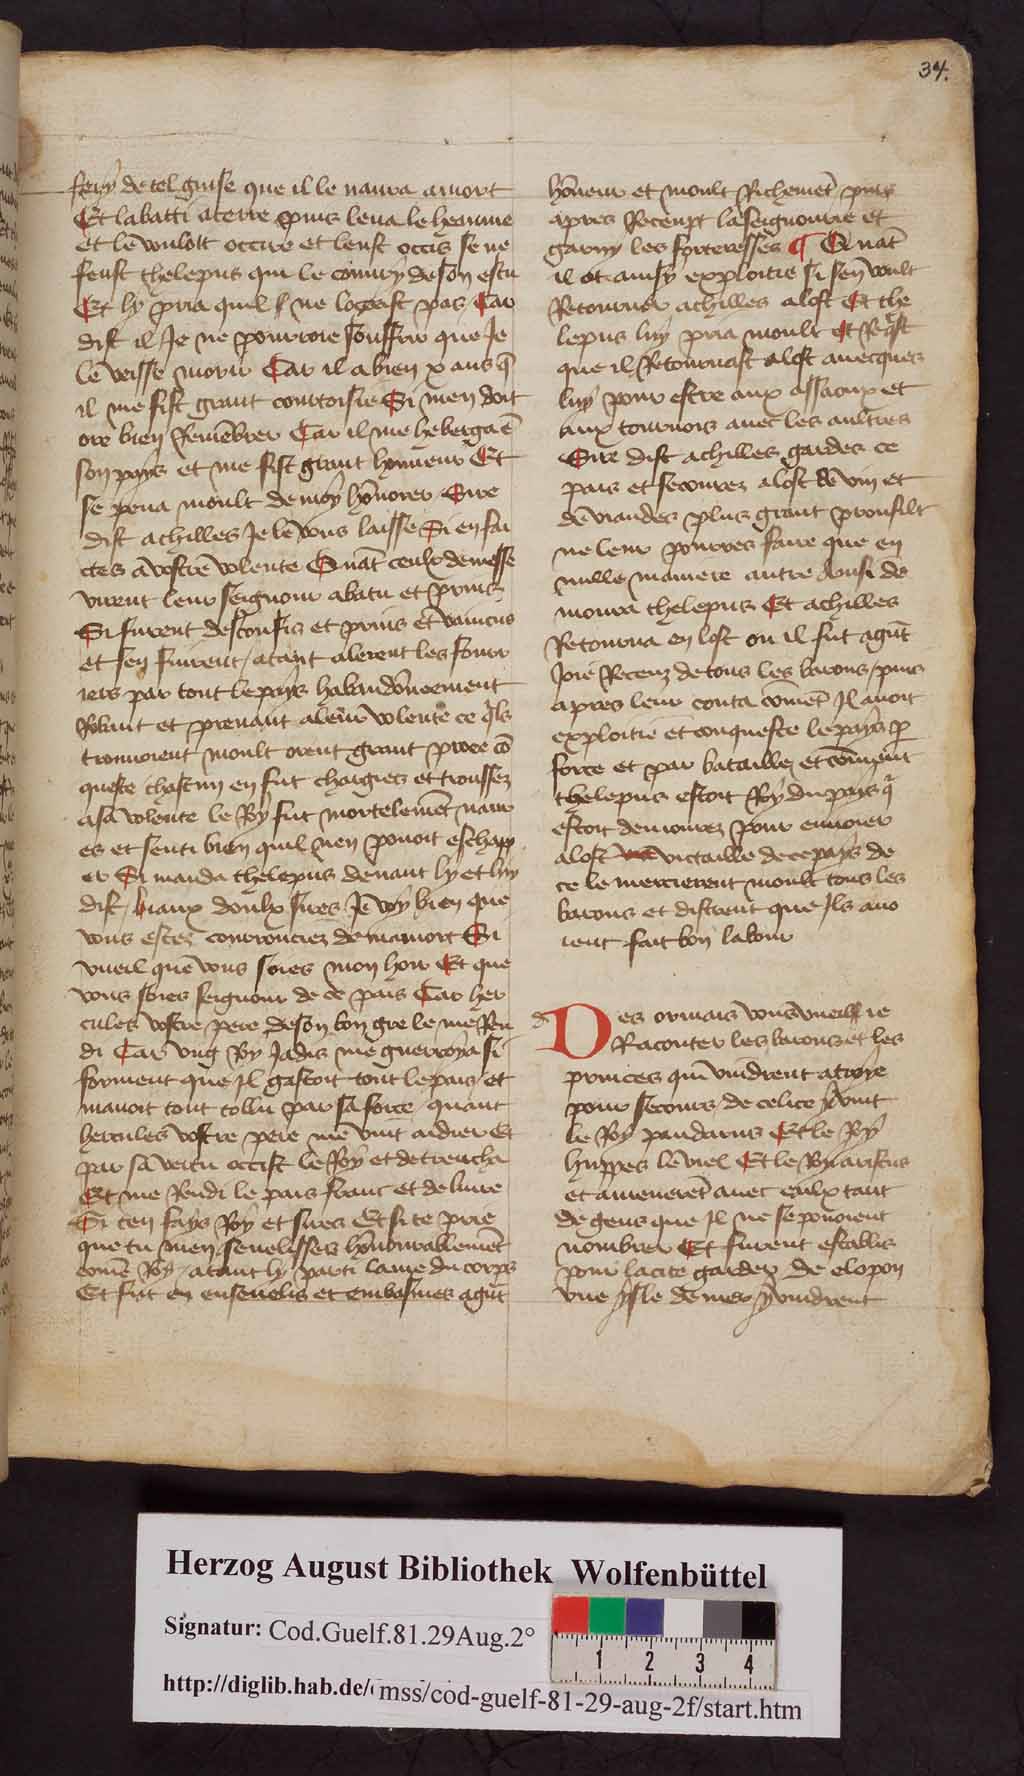 34.
fery de tel guise que il le navra a mort
Et labatti a terre puis leva le heaume
et le vouloit occire et leust occis se ne
feust thelepus qui le couvry de son escu
Et ly pria quil ne locceist pas Car
dist il Je ne pourroie souffrir que Je
le veisse morir Car il a bien x ans q̄
il me fist grant courtoisie Si men doit
ore bien Remēbrer Car il me heberga ē
son pays et me fist grant honneur Et
se pena moult de moy hōnorer Sire
dist achilles Je le vous laisse Si en fai
ctes a vostre volente Quāt ceulx de messe
virent leur seigneur abatu et prins
Si furent desconfis et prins et vaincus
et sen fuirent / atant alerent les fourr
iers par tout le pays habandōneement
Robant et prenant a leur volente ce q̄ls
trouvoient moult orent grant proee cō
queste chascun en fut chargies et troussez
a sa volente le Roy fut mortelemēt navr
es et senti bien quil nen pouoit eschapp
er Si manda thelepus devant ly et luy
dist / biaux doulx sires Je voy bien que
vous estez courrouciez de ma mort Si
vueil que vous soies mon hoir Et que
vous soies seigneur de ce pais Car her
cules vostre pere de son bon gre le me Ren
di Car ung Roy Jadis me guerroya si
forment que Jl gastoit tout le pais et
mavoit tout tollu par sa force / quant
hercules vostre pere me vint aidier Et
par sa vertu occist le Roy et detrencha
Et me Rendi le pais franc et delivre
Si ten fays Roy et sires Et si te prie
que tu men sevelisses hōnourablemēt
comē Roy / atant ly parti lame du corps
Et fut en ensevelis et embasmes a gūt
hōneur et moult Richemēt puis
apres Receupt la seignourie et
garny les forteresses ¶ Quāt
il ot ainsy exploitie si sen voult
Retourner achilles a lost Et the
lepus luy pria moult et Reqist
que il Retournast a lost avecques
luy pour estre aux assaux et
aux tournois avec les aultres
Sire dist achilles gardes ce
pais et secourez a lost de vin et
de viandes plus grant proufilt
ne leur pourres faire que en
nulle maniere autre Ainsi de
moura thelepus Et achilles
Retourna en lost ou il fut a gūt
Joie Receuz de tous les barons / puis
apres leur conta cōmēt Jl avoit
exploitie et conqueste le pays p̄
force et par bataille et cōmēnt
thelepus estoit Roy du pays q̄
estoit demourez pour envoier
a lost victaille de ce pays de
ce le mercierent moult tous les
barons et distrent que Jls avo
ient fait bon labour
d
Des ormais vous vueil ie
Raconter les barons et les
princes qui vindrent a troye
pour secours de celice y vint
le Roy pandarus Et le Roy
huppes le viel Et le Roy ariscus
et amenerēt avec eulx tant
de gens que Jl ne se pouoient
nombrer Et furent establis
pour la cite garder de elopon
une ysle de mer y vindrent
Herzog August Bibliothek Wolfenbüttel
Signatur: Cod.Guelf.81.29Aug.2°
1 2 3 4
http://diglib.hab.de/ mss/cod-guelf-81-29-aug-2f/start.htm